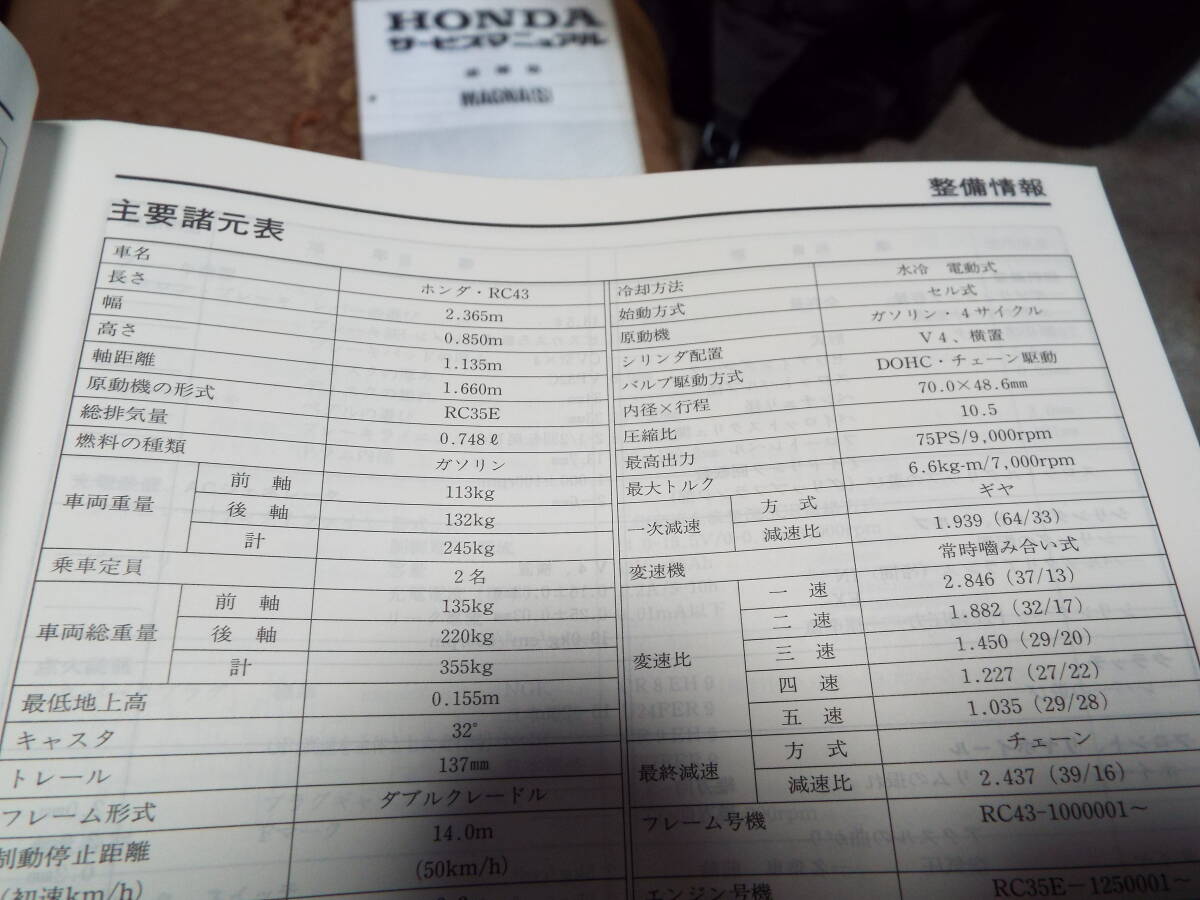 HONDA
サービスマニュアル
MAGNA(S)
整備情報
主要諸元表
車名 ホンダ・RC43
長さ 2.365m
幅 0.850m
高さ 1.135m
軸距離 1.660m
原動機の形式 RC35E
総排気量 0.748ℓ
燃料の種類 ガソリン
車両重量 前軸 113kg
後軸 132kg
計 245kg
乗車定員 2名
車両総重量 前軸 135kg
後軸 220kg
計 355kg
最低地上高 0.155m
キャスタ 32°
トレール 137㎜
フレーム形式 ダブルクレードル
制動停止距離 14.0m
(初速km/h) (50km/h)
冷却方法 水冷 電動式
始動方式 セル式
原動機 ガソリン・4サイクル
シリンダ配置 V4、横置
バルブ駆動方式 DOHC・チェーン駆動
内径×行程 70.0×48.6㎜
圧縮比 10.5
最高出力 75PS/9,000rpm
最大トルク 6.6kg-m/7,000rpm
一次減速 方式 ギヤ
減速比 1.939 (64/33)
変速機 常時嚙み合い式
変速比 一速 2.846 (37/13)
二速 1.882 (32/17)
三速 1.450 (29/20)
四速 1.227 (27/22)
五速 1.035 (29/28)
最終減速 方式 チェーン
減速比 2.437 (39/16)
フレーム号機 RC43-1000001～
エンジン号機 RC35E－1250001～